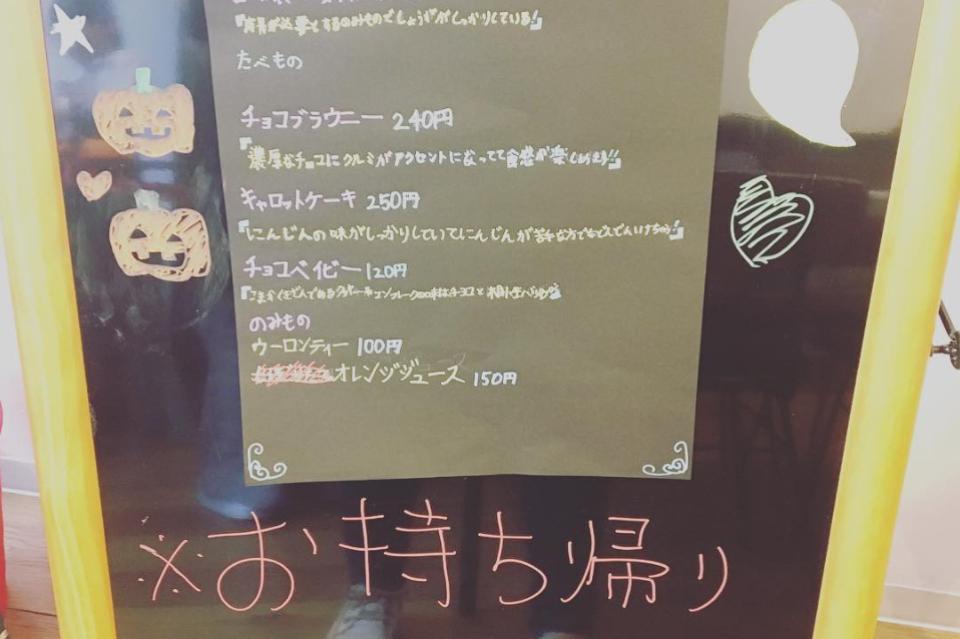 『が必要とするのみものでしょうががしっかりしている!』
たべもの
チョコブラウニー 240円
『濃厚なチョコにクルミがアクセントになってて食感が楽しめます!!』
キャロットケーキ 250円
『にんじんの味がしっかりしていてにんじんが苦手な方でも』
チョコベイビー 120円
のみもの
ウーロンティー 100円
オレンジジュース 150円
※お持ち帰り